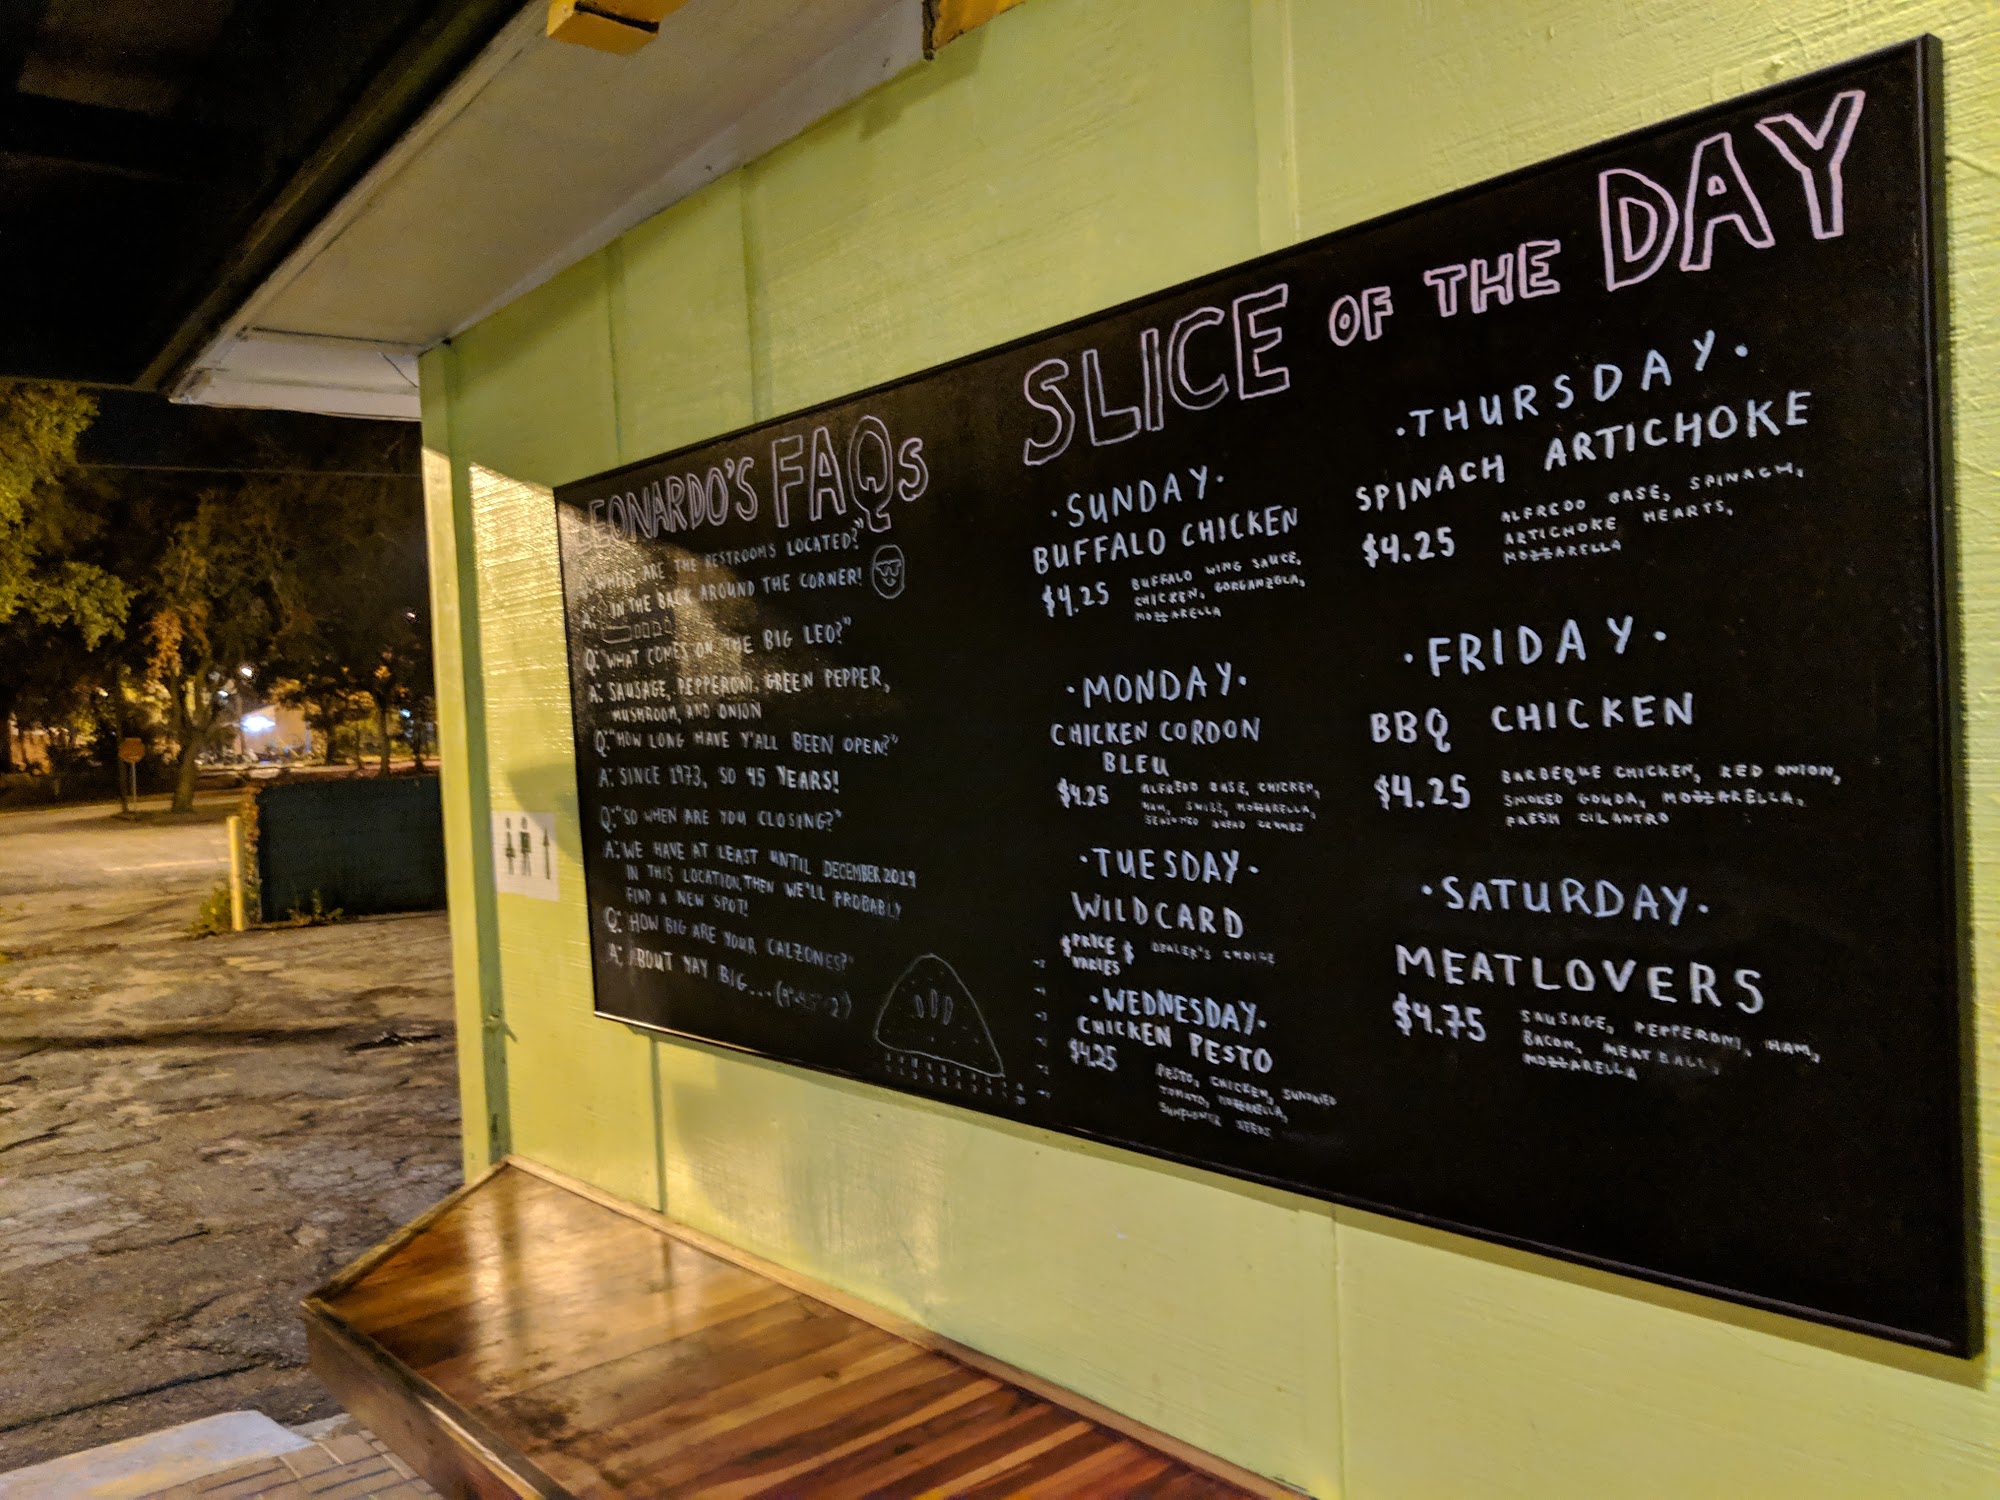 LEONARDO'S FAQs
Q: "WHERE ARE THE RESTROOMS LOCATED?"
A: IN THE BACK AROUND THE CORNER!
Q: "WHAT COMES ON THE BIG LEO?"
A: SAUSAGE, PEPPERONI, GREEN PEPPER,
MUSHROOM, AND ONION
Q: "HOW LONG HAVE Y'ALL BEEN OPEN?"
A: SINCE 1973, SO 45 YEARS!
Q: "SO WHEN ARE YOU CLOSING?"
A: WE HAVE AT LEAST UNTIL DECEMBER 2019
IN THIS LOCATION, THEN WE'LL PROBABLY
FIND A NEW SPOT!
Q: HOW BIG ARE YOUR CALZONES?"
A: ABOUT YAY BIG...
SLICE OF THE DAY
·SUNDAY·
BUFFALO CHICKEN
$4.25
BUFFALO WING SAUCE,
CHICKEN, GORGANZOLA,
MOZZARELLA
·MONDAY·
CHICKEN CORDON
BLEU
$4.25
ALFREDO BASE, CHICKEN,
HAM, SWISS, MOZZARELLA,
SEASONED BREAD CRUMBS
·TUESDAY·
WILDCARD
$ PRICE $
VARIES
DEALER'S CHOICE
·WEDNESDAY·
CHICKEN PESTO
$4.25
PESTO, CHICKEN, SUNDRIED
TOMATO, MOZZARELLA,
SUNFLOWER SEEDS
·THURSDAY·
SPINACH ARTICHOKE
$4.25
ALFREDO BASE, SPINACH,
ARTICHOKE HEARTS,
MOZZARELLA
·FRIDAY·
BBQ CHICKEN
$4.25
BARBEQUE CHICKEN, RED ONION,
SMOKED GOUDA, MOZZARELLA,
FRESH CILANTRO
·SATURDAY·
MEATLOVERS
$4.75
SAUSAGE, PEPPERONI, HAM,
BACON, MEATBALL,
MOZZARELLA